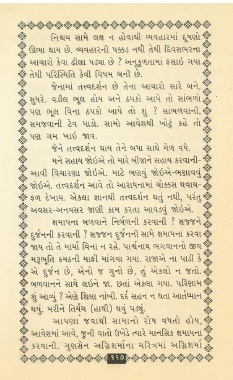 નિશ્ચય સામે લક્ષ ન હોવાથી વ્યવહારમાં દૂષણો
ઊભા થાય છે. વ્યવહારની પક્કડ નથી તેથી દિવસભરના
આચારો કેવા ઢીલા પડ્યા છે ? અનુકૂળતામાં ફસાઈ ગયા
તેથી પરિસ્થિતિ કેવી વિષમ બની છે.
જેનામાં તત્ત્વદર્શન છે તેના આચારો સારે બને,
સુધરે. વડીલ ભૂલ હોય અને ઠપકો આપે તો સાંભળો
પણ ભૂલ વિના ઠપકો આપે તો શું ? સાંભળવાની,
સમજવાની ટેવ પાડો. સામો આવેશથી ખોટું કહે તો
પણ ગમ ખાઈ જાવ.
જેને તત્ત્વદર્શન થાય તેને બધા સાથે મેળ વધે.
મને સહાય જોઈએ તો મારે બીજાને સહાય કરવાની-
આવી વિચારણા જોઈએ. માટે ભણવું જોઈએ-ભણાવવું
જોઈએ. તત્ત્વદર્શન આવે તો આરાધનામાં ચોક્કસ થવાય-
ફળ દેખાય. એકલા જ્ઞાનથી તત્ત્વદર્શન થતું નથી, પરંતુ
અવસર-અનવસર જાણી કામ કરતા આવડવું જોઈએ.
ક્ષમાપના બળવાને નિર્બળની કરવાની ? સજ્જને
દુર્જનની કરવાની ? સજ્જન દુર્જનની સામે ક્ષમાપના કરવા
જાય તો તે માર્યા વિના ન રહે. પાર્શ્વનાથ ભગવાનનો જીવ
મરુભૂતિ કમઠની માફી માંગવા ગયા. રાજાએ ના પાડી કે
એ દુર્જન છે, એનો જ ગુનો છે, તું એકલો ન જતો.
બળવાનને સાથે લઈને જા. છતાં એકલા ગયા. પરિણામ
શું આવ્યું ? એણે શિલા નાંખી. દર્દ સહન ન થતા આર્તધ્યાન
થયું. મરીને તિર્યંચ (હાથી) થવું પડ્યું.
આપણાં જવાથી સામાનો રોષ વધતો હોય,
આવેશમાં આવે, જૂની વાતો ઉખેડે ત્યારે માનસિક ક્ષમાપના
કરવાની. ગુણસેન અગ્નિશર્માના ચરિત્રમાં અગ્નિશર્મા